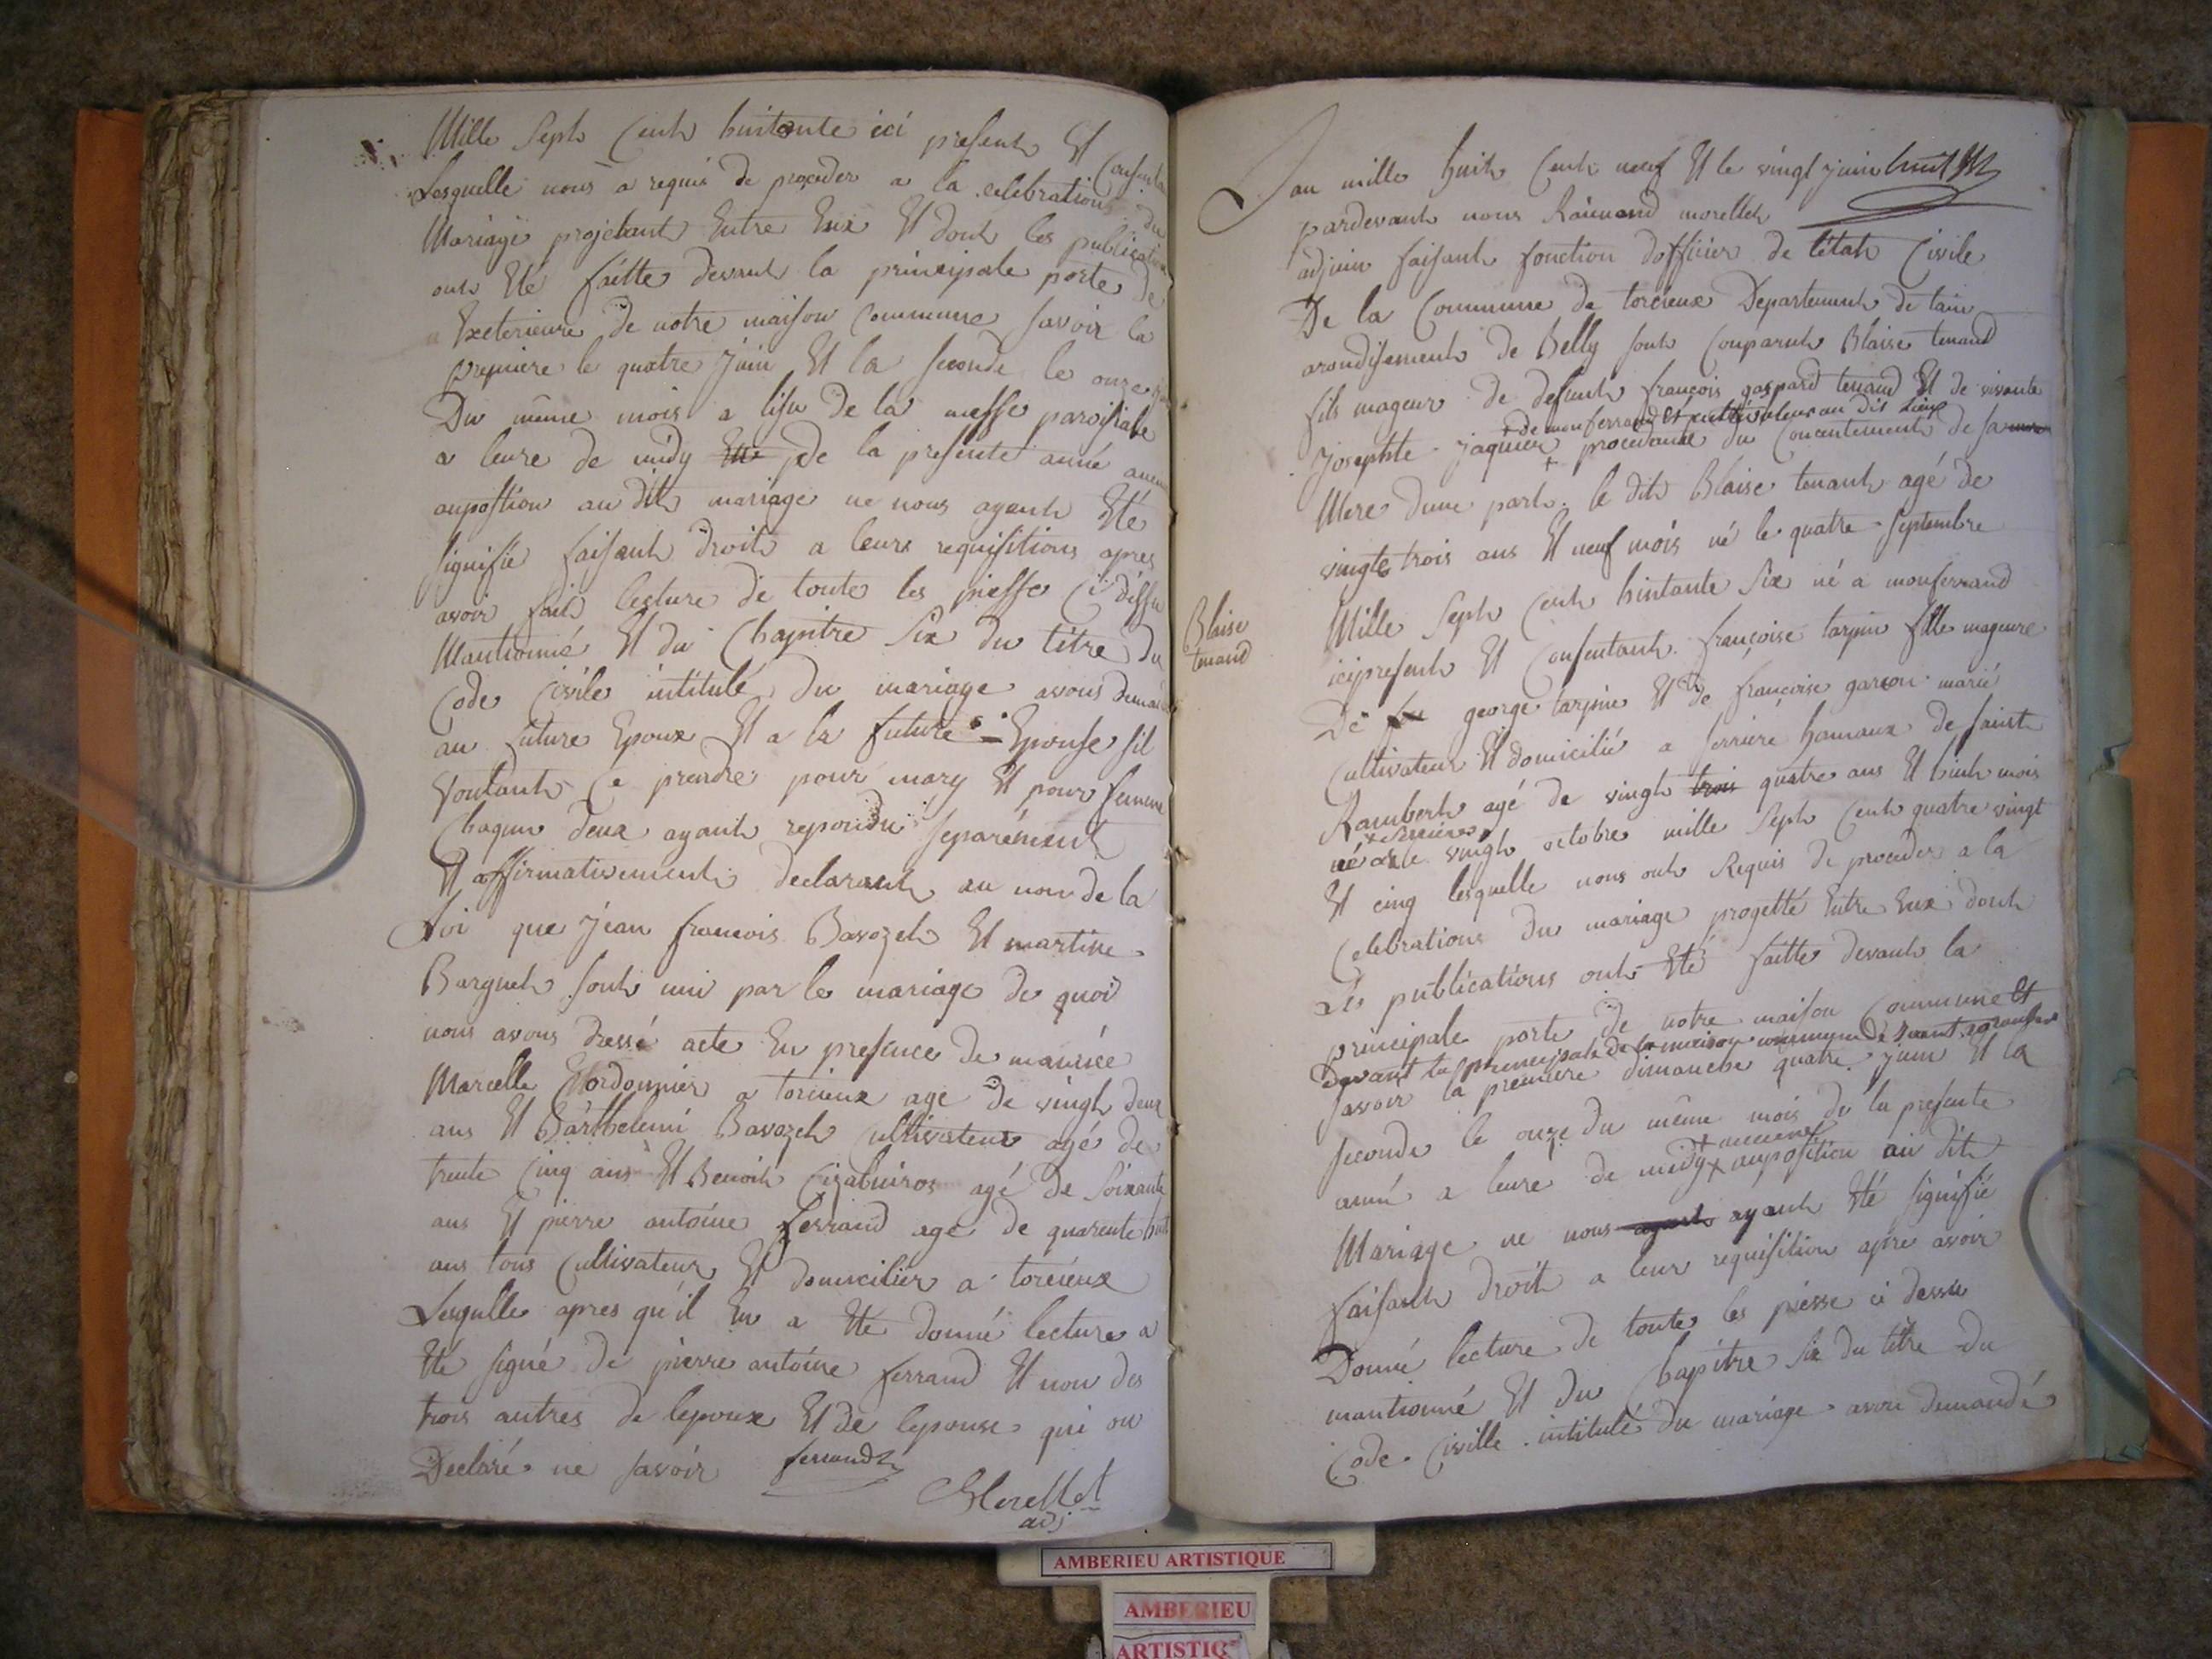 Mille Sept Cent huitante ici present Et Consentan
Lesquelle nous a requis de proçeder a la celebration du
Mariage projettant Entre Eux Et dont les publication
ont Eté faitte devant la principale porte De
Exeterieure de notre maison Commune Savoir la
premiere le quatre Juin Et la Seconde le onze
Du même mois a lisu De la messe paroisiale
a leure de midy de la presente anné aucu
aupostion au dit mariage ne nous ayant Eté
Signifié faisant droit a leurs requisitions apres
avoir fait lecture de toute les piesse Ci dessu
Mantionné Et du Chapitre Six du titre Du
Code Civile intitulé Du mariage avons demand
au future Epoux Et a la future Epouse Sil
Voulant Ce prendre pour mary Et pour femme
Chaqun deux ayant repondu Separément
Et affirmativement declarant au nom de la
Loi que Jean francois Bavozet Et martine
Barguet Sont uni par le mariage de quoi
nous avons dressé acte En presence de
Marcelle Cordonnier a torcieux age de vingt deux
ans Et Barthelemi Bavozet Cultivateur agé de
trente Cinq ans Et Benoit agé de Soixante
ans Et pierre antoine ferrand age de quarente huit
ans tous Cultivateur Et domicilier a torcieux
Lesqulle apres qu'il En a Eté donné lecture a
Eté Signé de pierre antoine ferrand Et non des
trois autres de lepoux Et de lepouse qui on
Declaré ne Savoir ferrand
Morellet
adj
Blaise
tenand
Jan mille huit Cent neuf Et le vingt juin
pardevant nous Raimond morellet
adjoin faisant fonction dofficier de létat Civile
De la Commune de torcieux Departement de lain
arondisement de Belly Sont Conparut Blaise tenand
fils mageur de defunt françois gaspard tenand Et de vivante
+ de monferrand Et cultivateur au dit Lieux
Josephte Jaquier + procedant du Concentement de Sa
Mere dune part. le dit Blaise tenant agé de
vingte trois ans Et neuf mois né le quatre Septembre
Mille Sept Cent huitante Six né a monferrand
icipresent Et Consentant. françoise tarpin fille mageure
De george tarpin Et de françoise garcon marié
Cultivateur Et domicilié a Serriere hamaux de Saint
Rambert agé de vingt trois quatre ans Et huit mois
+ Serrieres
né a le vingt octobre mille Sept Cent quatre vingt
Et cinq lesquelle nous ont Requis de proceder a la
Celebrations du mariage progetté Entre Eux dont
Les publications ont Eté faitte devant la
principale porte de notre maison Commune Et
Devant la principale de la maison commune de Saint rambert
Savoir la premiere dimanche quatre juin Et la
Seconde le onze du même mois de la presente
+ aucune
anné a leure de midy + auposition au dit
Mariage ne nous ayant ayant Eté Signifié
faisant droit a leur requisition apre avoir
Donné lecture de toute les piesse ci dessu
mantionné Et du Chapitre Six du titre du
Code Civille intitulé du mariage avon demandé
AMBERIEU ARTISTIQUE
AMBERIEU
ARTISTIQ